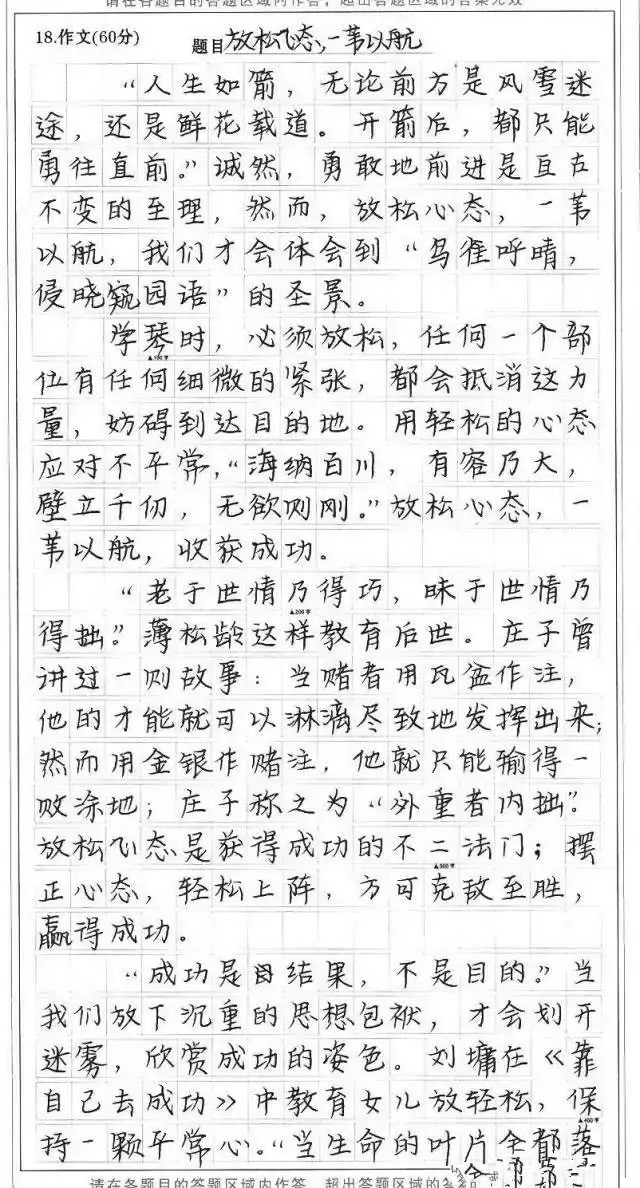 请在各题目的答题区域内作答，超出答题区域的答案无效
18.作文(60分)
题目放松心态，一苇以航
“人生如箭，无论前方是风雪迷
途，还是鲜花载道。开箭后，都只能
勇往直前。”诚然，勇敢地前进是亘古
不变的至理，然而，放松心态，一苇
以航，我们才会体会到“鸟雀呼晴，
侵晓窥园语”的圣景。
学琴时，必须放松，任何一个部
▲100字
位有任何细微的紧张，都会抵消这力
量，妨碍到达目的地。用轻松的心态
应对不平常，“海纳百川，有容乃大，
壁立千仞，无欲则刚。”放松心态，一
苇以航，收获成功。
“老于世情乃得巧，昧于世情乃
▲200字
得拙。”薄松龄这样教育后世。庄子曾
讲过一则故事：当赌者用瓦盆作注，
他的才能就可以淋漓尽致地发挥出来；
然而用金银作赌注，他就只能输得一
败涂地；庄子称之为“外重者内拙”。
放松心态是获得成功的不二法门；摆
▲300字
正心态，轻松上阵，方可克敌至胜，
赢得成功。
“成功是结果，不是目的。”当
我们放下沉重的思想包袱，才会划开
迷雾，欣赏成功的姿色。刘墉在《靠
自己去成功》中教育女儿放轻松，保
▲400字
持一颗平常心。“当生命的叶片全都落
请在各题目的答题区域内作答，超出答题区域的